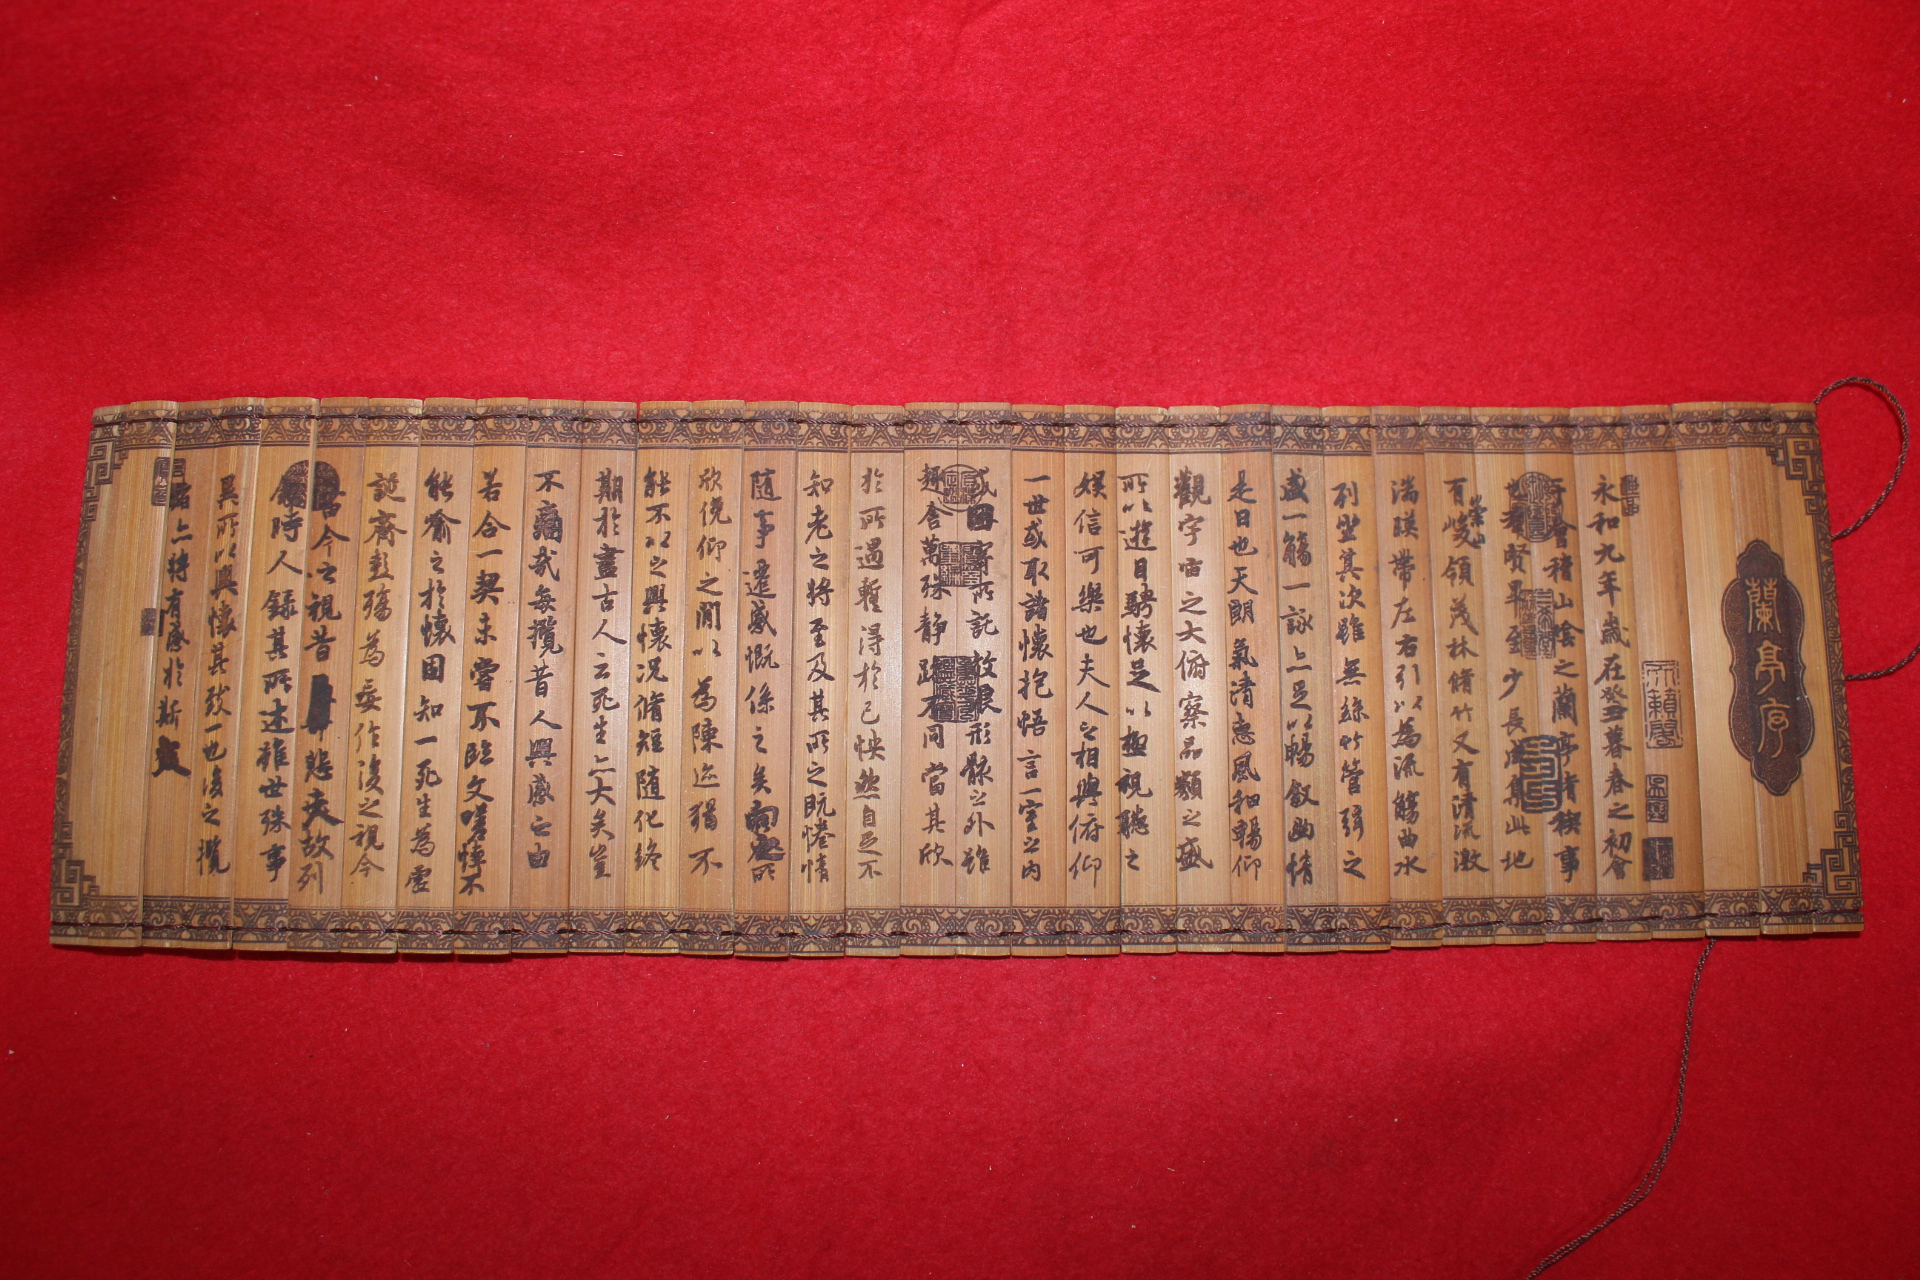 蘭亭序
永和九年歲在癸丑暮春之初會
于會稽山陰之蘭亭脩稧事
也羣賢畢至少長咸集此地
有崇山峻領茂林脩竹又有清流激
湍暎帶左右引以為流觴曲水
列坐其次雖無絲竹管弦之
盛一觴一詠亦足以暢敘幽情
是日也天朗氣清惠風和暢仰
觀宇宙之大俯察品類之盛
所以遊目騁懷足以極視聽之
娛信可樂也夫人之相與俯仰
一世或取諸懷抱悟言一室之內
或因寄所託放浪形骸之外雖
趣舍萬殊靜躁不同當其欣
於所遇蹔得於己怏然自足不
知老之將至及其所之既惓情
隨事遷感慨係之矣向之所
欣俛仰之閒以為陳迹猶不
能不以之興懷況脩短隨化終
期於盡古人云死生亦大矣豈
不痛哉每攬昔人興感之由
若合一契未嘗不臨文嗟悼不
能喻之於懷固知一死生為虛
誕齊彭殤為妄作後之視今
今之視昔悲夫故列
敘時人錄其所述雖世殊事
異所以興懷其致一也後之攬
者亦將有感於斯文